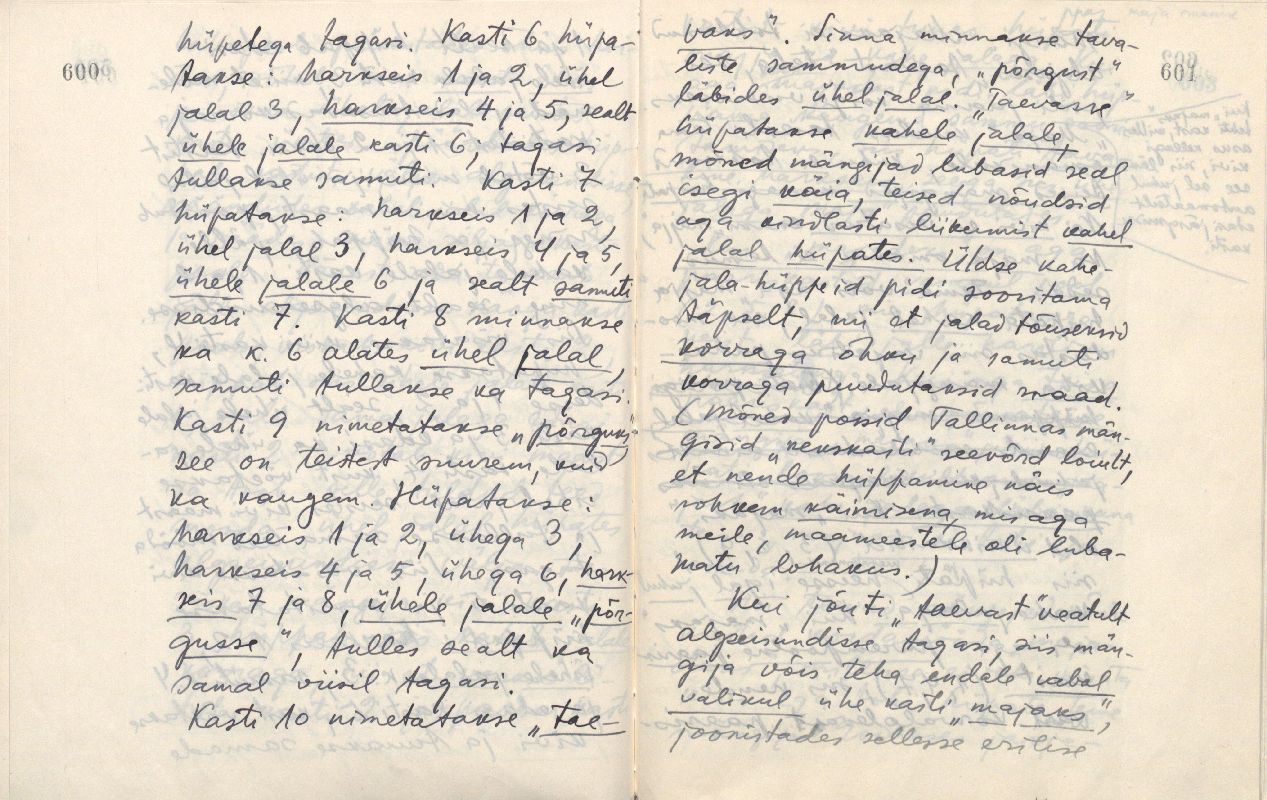 600
hüpetega tagasi. Kasti 6 hüpa-
takse: harkseis 1 ja 2, ühel
jalal 3, harkseis 4 ja 5, sealt
ühele jalale kasti 6; tagasi
tullakse samuti. Kasti 7
hüpatakse: harkseis 1 ja 2,
ühel jalal 3, harkseis 4 ja 5,
ühele jalale 6 ja sealt samuti
kasti 7. Kasti 8 minnakse
ka k. 6 alates ühel jalal,
samuti tullakse ka tagasi.
Kasti 9 nimetatakse „põrguks"
see on teistest suurem, kuid
ka kaugem. Hüpatakse:
harkseis 1 ja 2, ühega 3,
harkseis 4 ja 5, ühega 6, hark-
seis 7 ja 8, ühele jalale „põr-
gusse", tulles sealt ka
samal viisil tagasi.
Kasti 10 nimetatakse „tae-
601
vaks". Sinna minnakse tava-
liste sammudega, „põrgust"
läbides ühel jalal. „Taevasse"
hüpatakse kahele jalale,
mõned mängijad lubasid seal
isegi käia, teised nõudsid
aga kindlasti liikumist kahel
jalal hüpates. Üldse kahe-
jala-hüppeid pidi sooritama
täpselt, nii et jalad tõuseksid
korraga õhku ja samuti
korraga puudutaksid maad.
(Mõned poisid Tallinnas män-
gisid „kekskasti" seevõrd loiult,
et nende hüppamine näis
rohkem käimisena, mis aga
meile, maameestele oli luba-
matu lohakus.)
Kui jõuti „taevast" veatult
algseisundisse tagasi, siis män-
gija võis teha endale vabal
valikul ühe kasti „majaks",
joonistades sellesse erilise